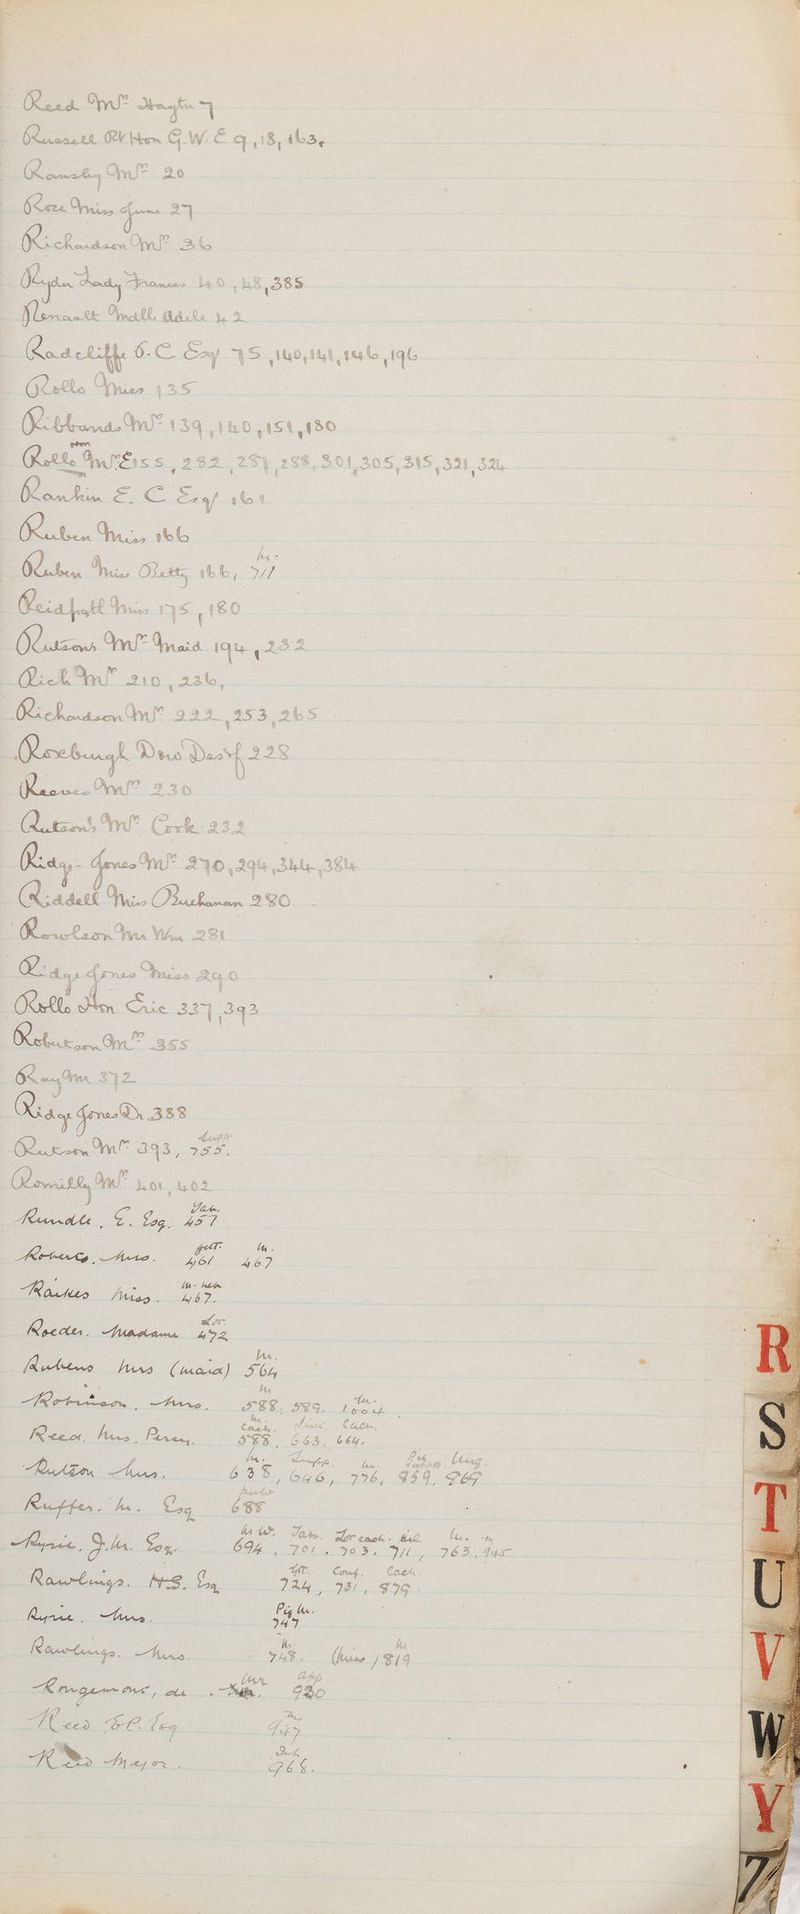 Reed Mrs Hayter 7
Russell Rt Hon G. W. E 9, 18, 163,
Ransley Mrs 20
Rose Miss June 27
Richardson Mrs 36
Ryder Lady Frances 40, 48, 385
Renault Mdlle Adele 42
Radcliffe Esqr 75, 140, 141, 146, 196
Rollo Miss 135
Ribbands Mrs 139, 140, 151, 180
Rollo Mrs E 155, 282, 287, 288, 301, 305, 315, 321, 324
Rankin E. C Esqr 161
Ruben Miss 166
Ruben Miss Betty 166, 711
Miss 175, 180
Rutson's Mrs Maid 194, 232
Rich Mrs 210, 236,
Richardson Mrs 222, 253, 265
Roxburgh 228
Reeves Mrs 230
Rutson's Mrs Cook 232
Ridge-Jones Mrs 270, 294, 344, 384
Riddell Miss Buchanan 280
Rowlson Mr Wm 281
Ridge Jones Miss 290
Rollo Hon Eric 337, 393
Robertson Mrs 355
Ray Mr 372
Ridge Jones Dr 388
Supp.
Rutson Mrs 393, 755.
Romilly Mrs 401, 402
Rundle, E. Esq. 457
m.
Roberts, Mrs. 461 467
Raikes Miss. 467.
Roeder. Madame 472
m.
Rubens Mrs (maid) 564
m
Robinson. Mrs. 588. 589. 1004
m. Cach.
Reed. Mrs. Percy. 588, 663, 664.
m. Supp. m.
Rutson Mrs. 638, 646, 776, 859, 869
Ruffer. M. Esq 688
m
Ryrie, J. M. Esq. 694, 701. 703. 711, 763, 945
Conf. Cach
Rawlings. H.S. Esq 724, 731, 879
Pig m.
Ryrie, Mrs. 747
m. m
Rawlings. Mrs. 748. (Miss) 819
Mr App
Rougemont, de. 920
Reed E.P. Esq 947
Reid Major. 968.
R
S
T
U
V
W
Y